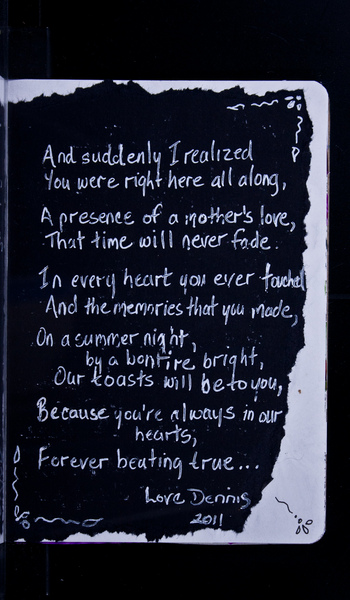 And suddenly I realized
You were right here all along,
A presence of a mother's love,
That time will never fade.
In every heart you ever touched
And the memories that you made,
On a summer night,
by a bonfire bright,
Our toasts will be to you,
Because you're always in our
hearts,
Forever beating true...
Love Dennis
2011